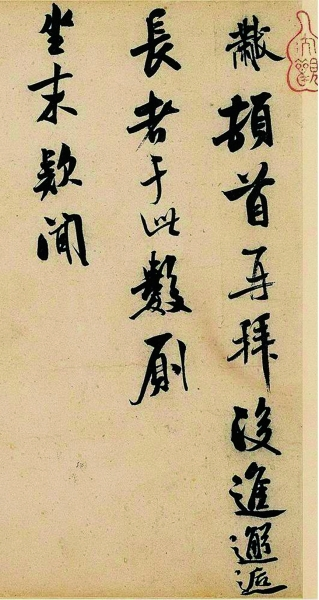 黻頓首再拜後進邂逅
長者于此數厠
坐末款聞